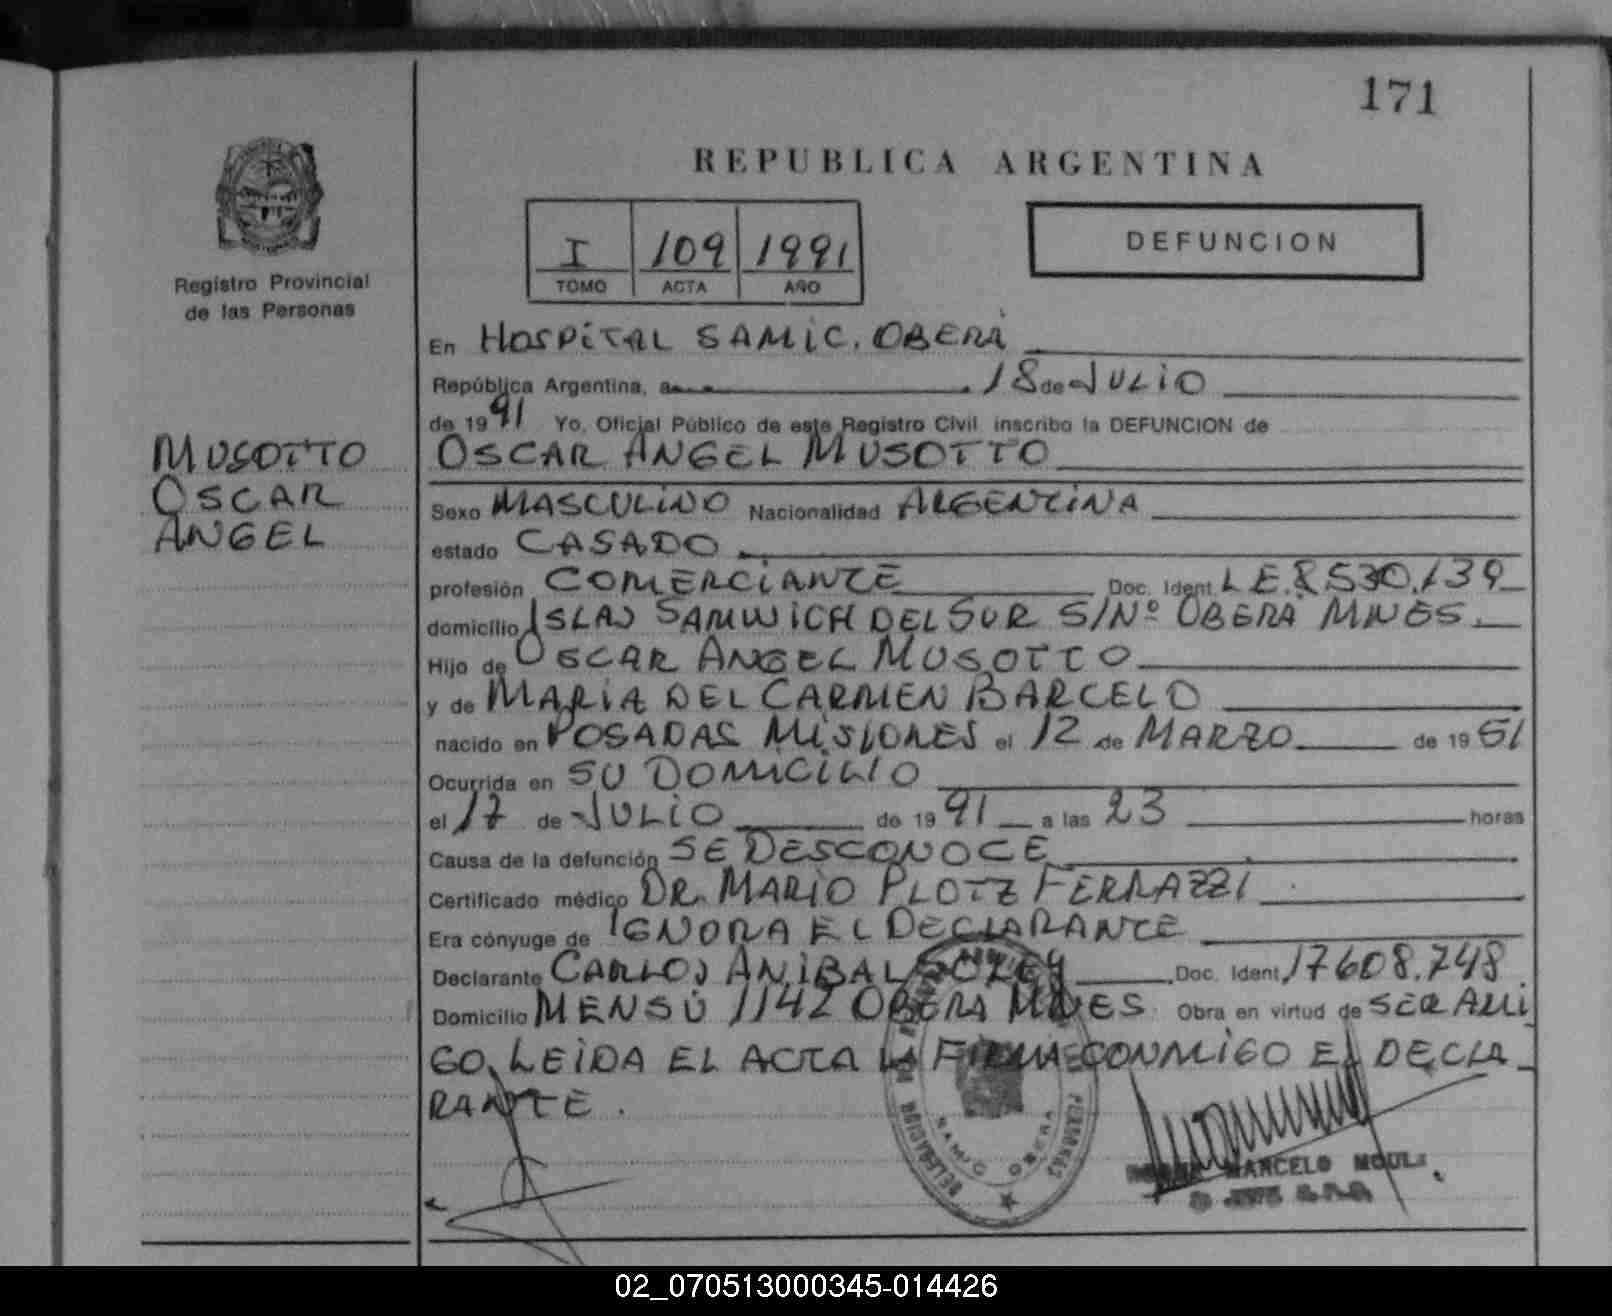 171
REPUBLICA ARGENTINA
I 109 1991
TOMO ACTA AÑO
DEFUNCION
Registro Provincial
de las Personas
MUSOTTO
OSCAR
ANGEL
En HOSPITAL SAMIC. OBERÁ
República Argentina, a 18 de JULIO
de 19 91 Yo, Oficial Público de este Registro Civil inscribo la DEFUNCION de
OSCAR ANGEL MUSOTTO
Sexo MASCULINO Nacionalidad ARGENTINA
estado CASADO
profesión COMERCIANTE Doc. Ident. L.E. 8.530.139
domicilio ISLAS SAMWICH DEL SUR S/Nº OBERÁ MNES.
Hijo de OSCAR ANGEL MUSOTTO
y de MARÍA DEL CARMEN BARCELO
nacido en POSADAS MISIONES el 12 de MARZO de 19 51
Ocurrida en SU DOMICILIO
el 17 de JULIO de 19 91 a las 23 horas
Causa de la defunción SE DESCONOCE
Certificado médico DR. MARIO PLOTZ FERRAZZI
Era cónyuge de IGNORA EL DECLARANTE
Declarante CARLOS ANIBAL Doc. Ident. 17608.748
Domicilio MENSÚ 1142 OBERÁ MNES. Obra en virtud de SER AMI
GO. LEIDA EL ACTA LA FIRMA CONMIGO EL DECLA
RANTE.
DELEGACION
SAMIC OBERA
MARCELO
02_070513000345-014426